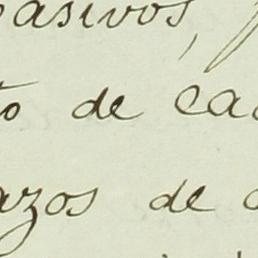 pasivos,
to de ca
azos de